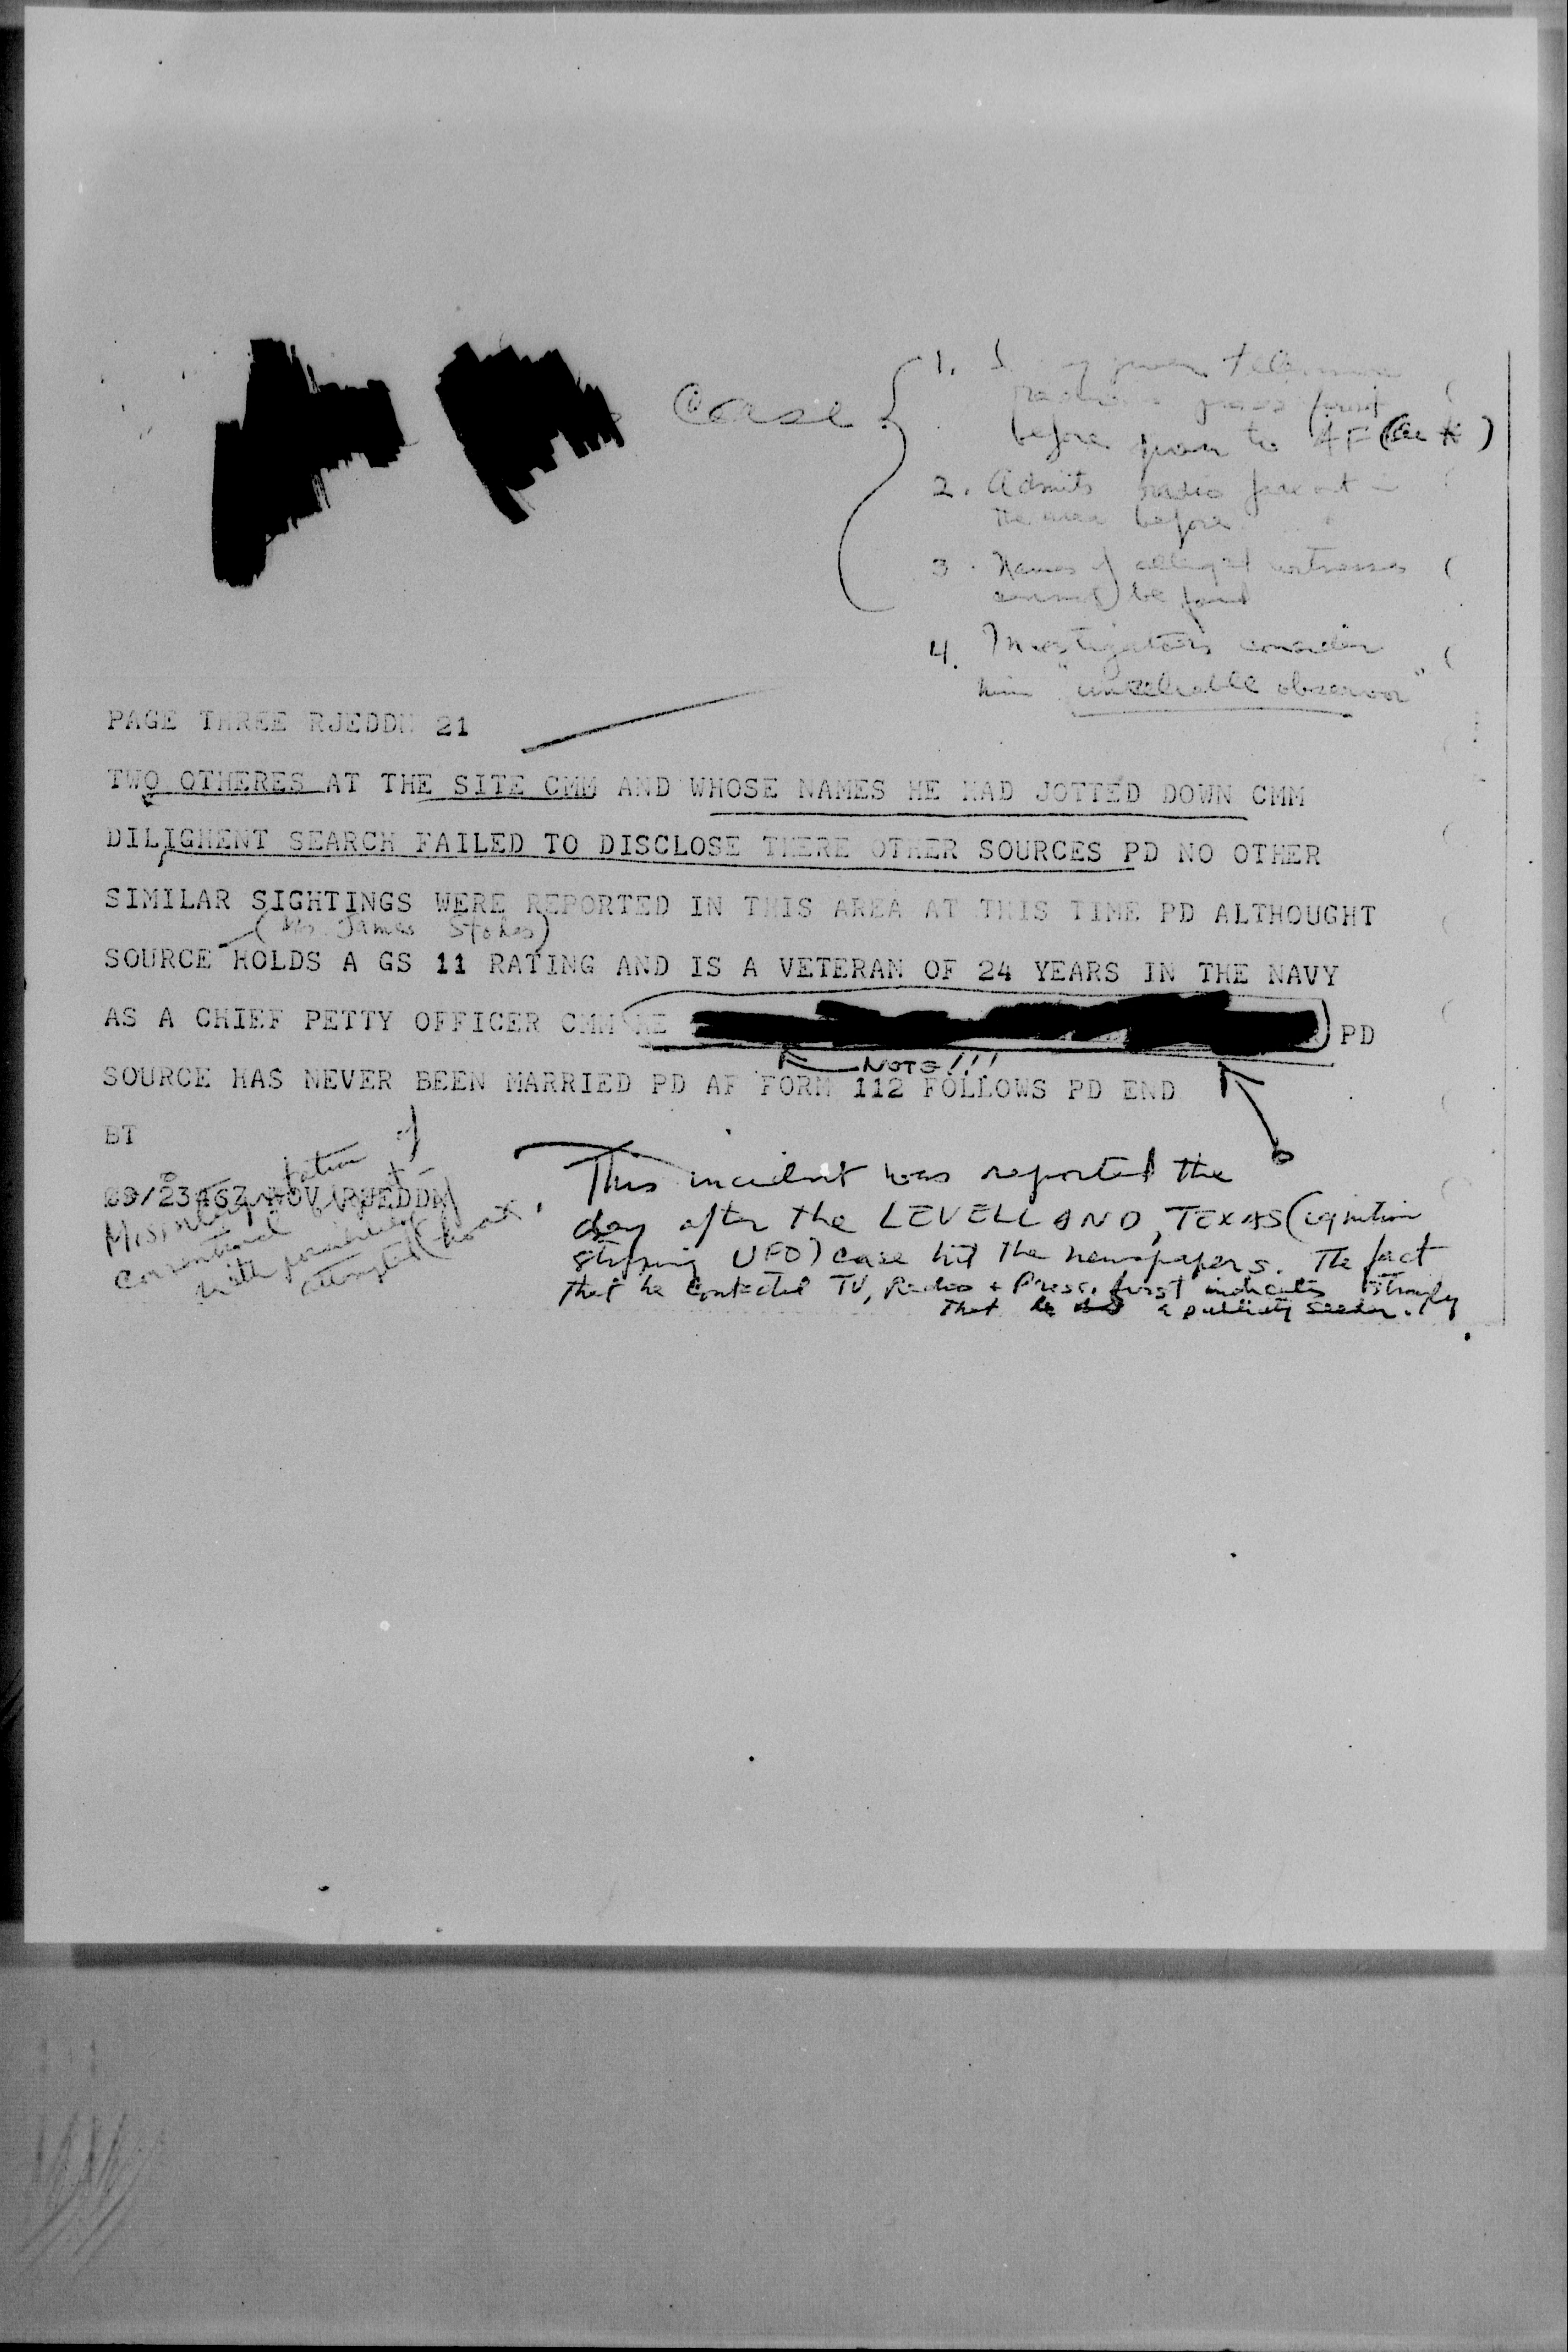 Case
1. given Television
press first
before to AF (
2. Admits radio in
the area before
3. Names of alleged witnesses
cannot be found
4. Investigators consider
him "unreliable observor"
PAGE THREE RJEDDN 21
TWO OTHERES AT THE SITE CMM AND WHOSE NAMES HE HAD JOTTED DOWN CMM
DILIGHENT SEARCH FAILED TO DISCLOSE THERE OTHER SOURCES PD NO OTHER
SIMILAR SIGHTINGS WERE REPORTED IN THIS AREA AT THIS TIME PD ALTHOUGHT
(Mr. James Stokes)
SOURCE HOLDS A GS 11 RATING AND IS A VETERAN OF 24 YEARS IN THE NAVY
AS A CHIEF PETTY OFFICER CMM HE PD
NOTE!!!
SOURCE HAS NEVER BEEN MARRIED PD AF FORM 112 FOLLOWS PD END
BT
09/2346Z NOV RJEDDN
Misinterpretation of
conventional
with possibility
attempted hoax.
This incident was reported the
day after the LEVELLAND, TEXAS (ignition
stopping UFO) case hit the newspapers. The fact
that he contacted TV, Radio + Press, first indicates strongly
that a publicity seeker.